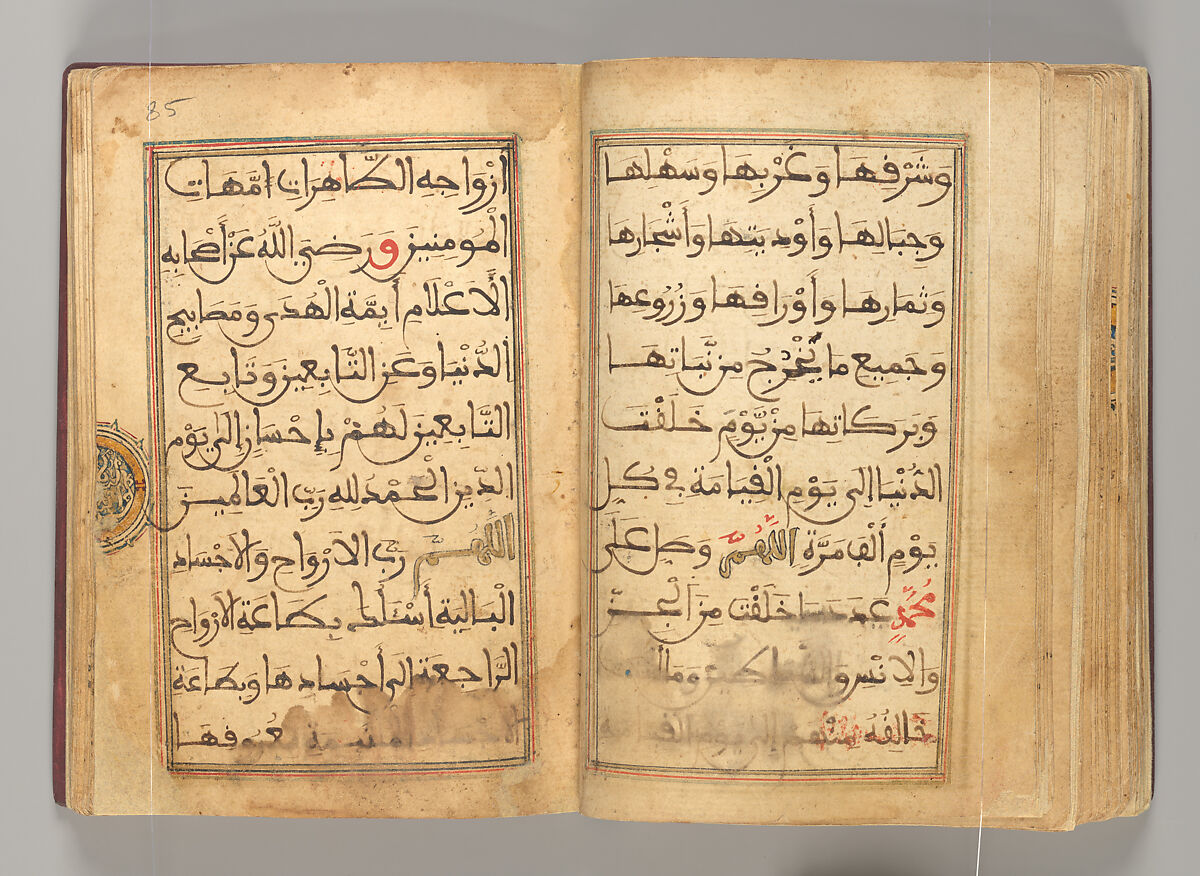 وَشَرْقِهَا وَغَرْبِهَا وَسَهْلِهَا
وَجِبَالِهَا وَأَوْدِيَتِهَا وَأَشْجَارِهَا
وَثِمَارِهَا وَأَوْرَاقِهَا وَزُرُوعِهَا
وَجَمِيعِ مَا يَخْرُجُ مِن نَّبَاتِهَا
وَبَرَكَاتِهَا مِن يَّوْمِ خَلَقْتَ
الدُّنْيَا إِلَى يَوْمِ الْقِيَامَةِ فِي كُلِّ
يَوْمٍ أَلْفَ مَرَّةٍ اللَّهُمَّ وَصَلِّ عَلَى
مُحَمَّدٍ عَدَدَ مَا خَلَقْتَ مِنَ الْجِنِّ
وَالِانْسِ وَالشَّيَاطِينِ وَمَا أَنْتَ
خَالِقُهُ مِنْهُمْ إِلَى يَوْمِ الْقِيَامَةِ
85
أَزْوَاجِهِ الطَّاهِرَاتِ أُمَّهَاتِ
الْمُومِنِينَ وَرَضِيَ اللَّهُ عَنْ أَصْحَابِهِ
الْأَعْلَامِ أَيِمَّةِ الْهُدَى وَمَصَابِيحِ
الدُّنْيَا وَعَنِ التَّابِعِينَ وَتَابِعِ
التَّابِعِينَ لَهُمْ بِإِحْسَانٍ إِلَى يَوْمِ
الدِّينِ الْحَمْدُ لِلَّهِ رَبِّ الْعَالَمِينَ
اللَّهُمَّ رَبَّ الْأَرْوَاحِ وَالْأَجْسَادِ
الْبَالِيَةِ أَسْئَلُكَ بِطَاعَةِ الْأَرْوَاحِ
الرَّاجِعَةِ إِلَى أَجْسَادِهَا وَبِطَاعَةِ
الْأَجْسَادِ الْمُلْتَئِمَةِ بِعُرُوقِهَا